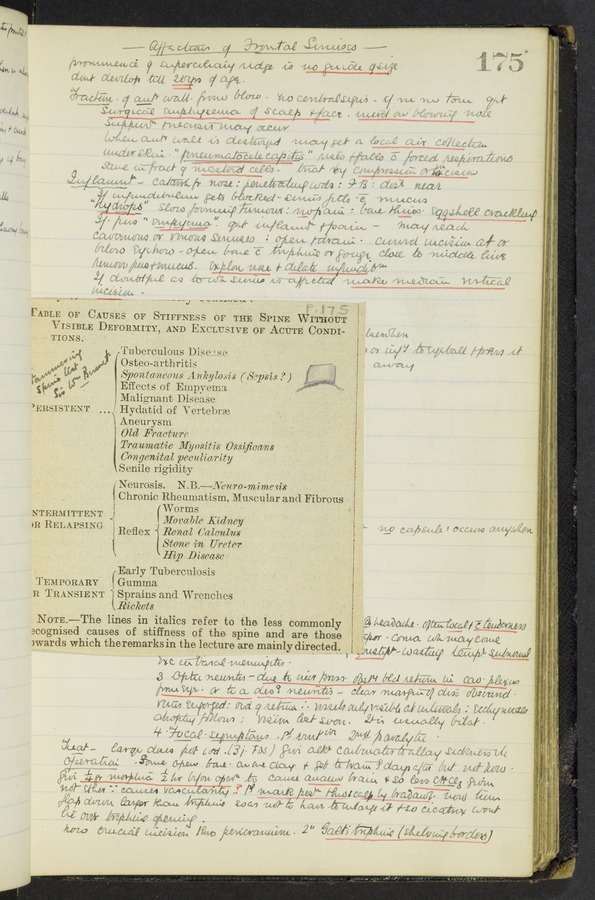 — Affections of Frontal Sinuses —
175
prominence of superciliary ridge is no guide of size
dont develop till 20yrs of age.
Fracture of antr wall. from blow. no central signs. If m m torn get
Surgical emphysema of scalp & face. incrd on blowing nose
Suppurn & necrosis may occur
When antr wall is destroyed may get a local air collection
under skin. "pneumatocele capitis" rises & falls c forced respirations
Same in fract of mastoid cells. treat by compression or incision
Inflammn - catarrh fr nose: penetrating wds: F B: dist near
If infundibulum gets blocked - sinus fills c mucus
"Hydrops" slow forming tumour: no pain: bone thins eggshell crackling
If pus "empyema". get inflamn & pain - may reach
cavernous or venous sinuses: open & drain. curved incision at or
below eyebrow - open bone c trephine or gouge close to middle line
remove pus & mucus. explore nose & dilate infundibm
If doubtful as to wh sinus is affected make median vertical
incision.
P. 175
TABLE OF CAUSES OF STIFFNESS OF THE SPINE WITHOUT
VISIBLE DEFORMITY, AND EXCLUSIVE OF ACUTE CONDI-
TIONS.
Sir Wm Bennett
PERSISTENT ...
Tuberculous Disease
Osteo-arthritis
Spontaneous Ankylosis (Sepsis?)
Effects of Empyema
Malignant Disease
Hydatid of Vertebræ
Aneurysm
Old Fracture
Traumatic Myositis Ossificans
Congenital peculiarity
Senile rigidity
NTERMITTENT
OR RELAPSING
Neurosis. N.B.—Neuro-mimesis
Chronic Rheumatism, Muscular and Fibrous
Reflex
Worms
Movable Kidney
Renal Calculus
Stone in Ureter
Hip Disease
TEMPORARY
R TRANSIENT
Early Tuberculosis
Gumma
Sprains and Wrenches
Rickets
NOTE.—The lines in italics refer to the less commonly
ecognised causes of stiffness of the spine and are those
owards which the remarks in the lecture are mainly directed.
elsewhere
or inft to eyeball & press it
away
- no capsule: occurs anywhere
headache. often local & c tenderness
coma wh may come
wasting tempt subnormal
3 Optic neuritis - due to
or to a desc neuritis - clear margin of disc obscured
vision lost soon. It is usually bilat.
4 Focal symptoms. 1st irritive 2nd paralytic.
Treat - large doses pot iod.
operation. Some open bone one day & get to brain 7 days after but not now.
Give 1/4 gr morphia 1/2 hr before opern to cause anaemic brain & so less CHCl3 given
not ether ∵ causes vascularity 1st mark post thro scalp by bradawl. now turn
flap down larger than trephine so as not to have to enlarge it & so cicatrix wont
be over trephine opening.
now crucial incision thro pericranium. 2" Galts trephine (shelving borders)